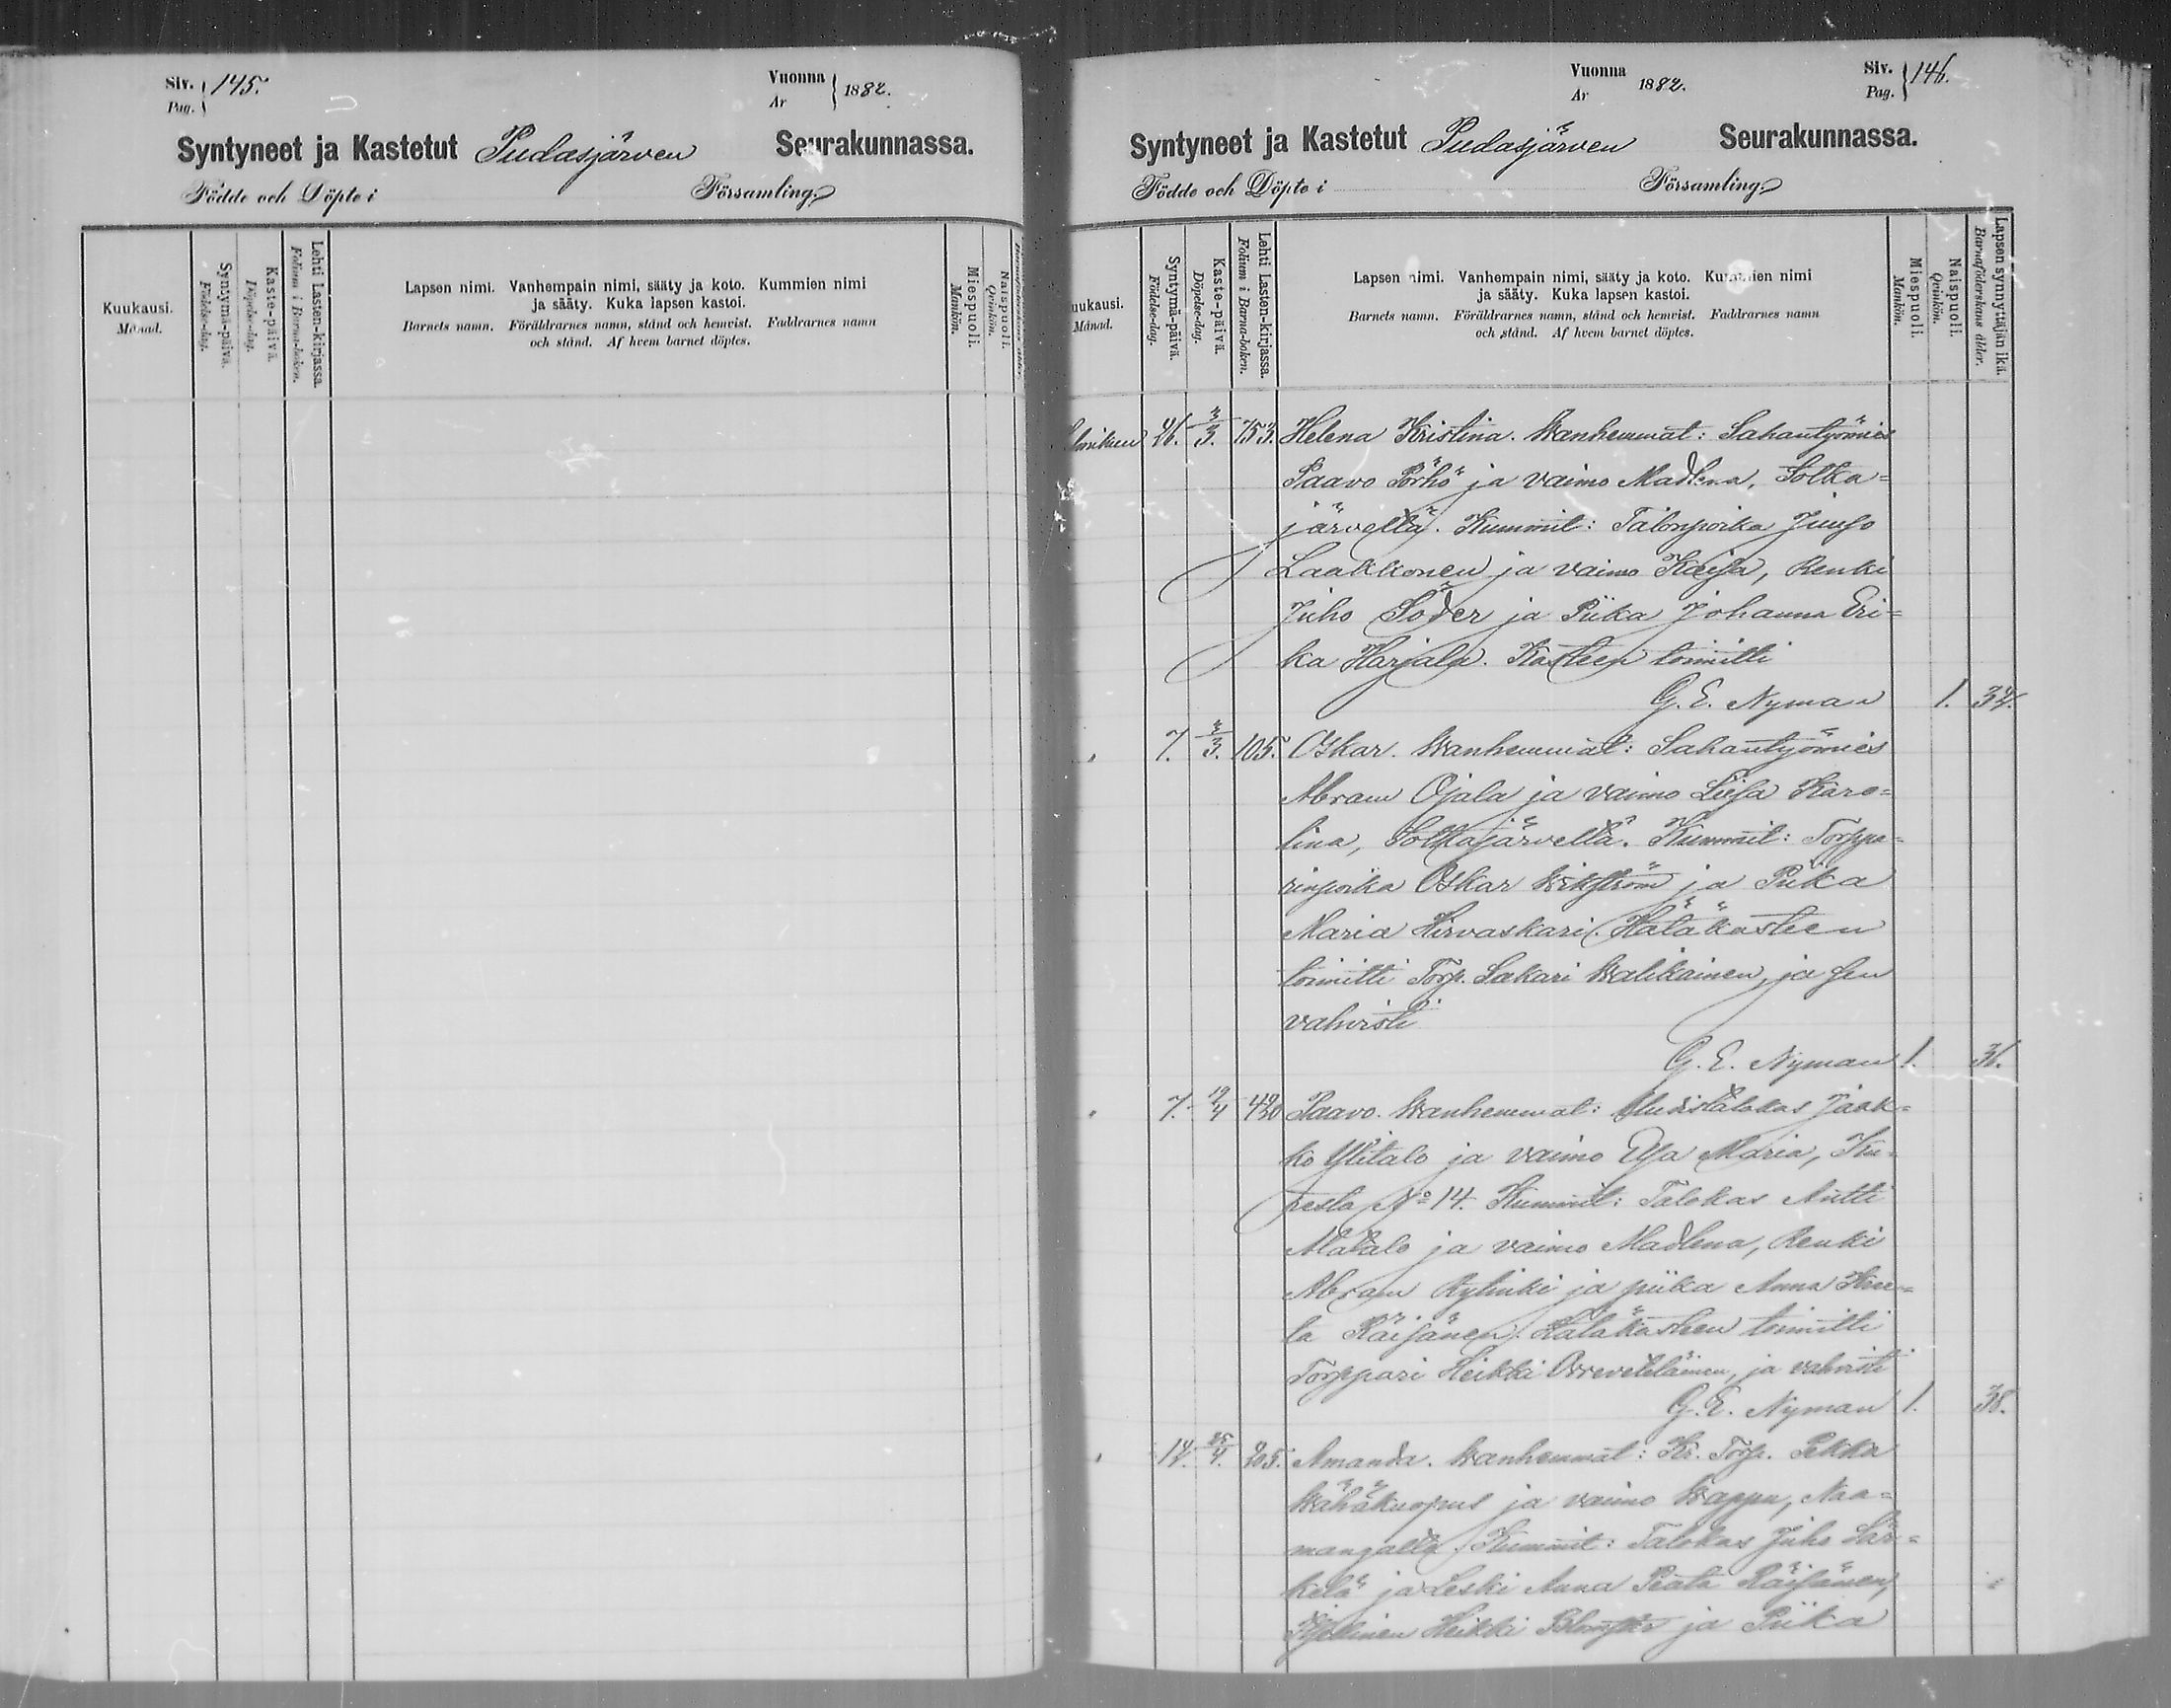 Siv. 145.
Pag.
Vuonna 1882.
År
Syntyneet ja Kastetut Pudasjärven Seurakunnassa.
Födde och Döpte i Församling.
Kuukausi.
Månad.
Syntymä-päivä.
Födelse-dag.
Kaste-päivä.
Döpelse-dag.
Lehti Lasten-kirjassa.
Folium i Barna-boken.
Lapsen nimi. Vanhempain nimi, sääty ja koto. Kummien nimi
ja sääty. Kuka lapsen kastoi.
Barnets namn. Föräldrarnes namn, stånd och hemvist. Faddrarnes namn
och stånd. Af hvem barnet döptes.
Miespuoli.
Mankön.
Naispuoli.
Qvinkön.
Vuonna 1882.
År
Siv. 146.
Pag.
Syntyneet ja Kastetut Pudasjärven Seurakunnassa.
Födde och Döpte i Församling.
uukausi.
Månad.
Syntymä-päivä.
Födelse-dag.
Kaste-päivä.
Döpelse-dag.
Lehti Lasten-kirjassa.
Folium i Barna-boken.
Lapsen nimi. Vanhempain nimi, sääty ja koto. Kummien nimi
ja sääty. Kuka lapsen kastoi.
Barnets namn. Föräldrarnes namn, stånd och hemvist. Faddrarnes namn
och stånd. Af hvem barnet döptes.
Miespuoli.
Mankön.
Naispuoli.
Qvinkön.
Lapsen synnyttäjän ikä.
Barnaföderskans ålder.
26. 3/3. 753. Helena Kristina. Wanhemmat: Sahantyömies
Paavo Pörhö ja vaimo Madlena, Sotka=
järvellä. Kummit: Talonpoika Juuso
Laakkonen ja vaimo Kaisa, Renki
Juho Söder ja Piika Johanna Eri=
ka Harjala. Kasteen toimitti
G. E. Nyman 1. 34.
7. 3/3. 105. Oskar. Wanhemmat: Sahantyömies
Abram Ojala ja vaimo Liisa Karo=
lina, Sotkajärvellä. Kummit: Torppa=
rinpoika Oskar Wikström ja Piika
Maria Hirvaskari. Hätäkasteen
toimitti Torp. Sakari Walikainen, ja sen
vahvisti
G. E. Nyman 1. 36.
7. 19/4 420 Paavo. Wanhemmat: Uudistalokas Jaak=
ko Ylitalo ja vaimo Elsa Maria, Ku=
resta No 14. Kummit: Talokas Antti
Alatalo ja vaimo Madlena, Renki
Abram Rytinki ja piika Anna
Räisänen. Hätäkasteen toimitti
Torppari Heikki ja vahvisti
G. E. Nyman 1. 38.
14. 25/4. 205. Amanda. Wanhemmat: Kr. Torp. Pekka
Wähäkuopus ja vaimo Wappu, Naa=
mangalla. Kummit: Talokas Juho Sär=
kelä ja Leski Anna Peata Räisänen,
Heikki Blomster ja Piika